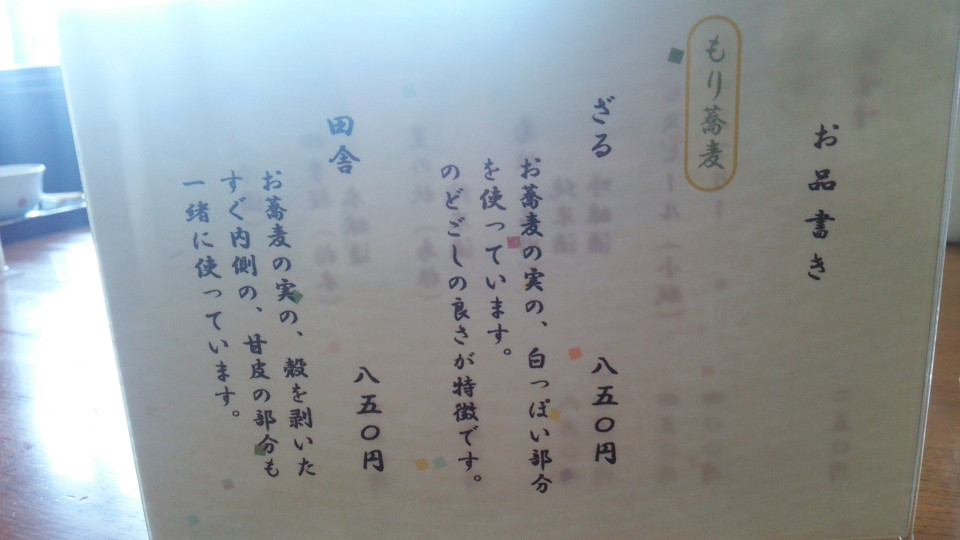 お品書き
もり蕎麦
ざる
八五〇円
お蕎麦の実の、白っぽい部分
を使っています。
のどごしの良さが特徴です。
田舎
八五〇円
お蕎麦の実の、殻を剥いた
すぐ内側の、甘皮の部分も
一緒に使っています。